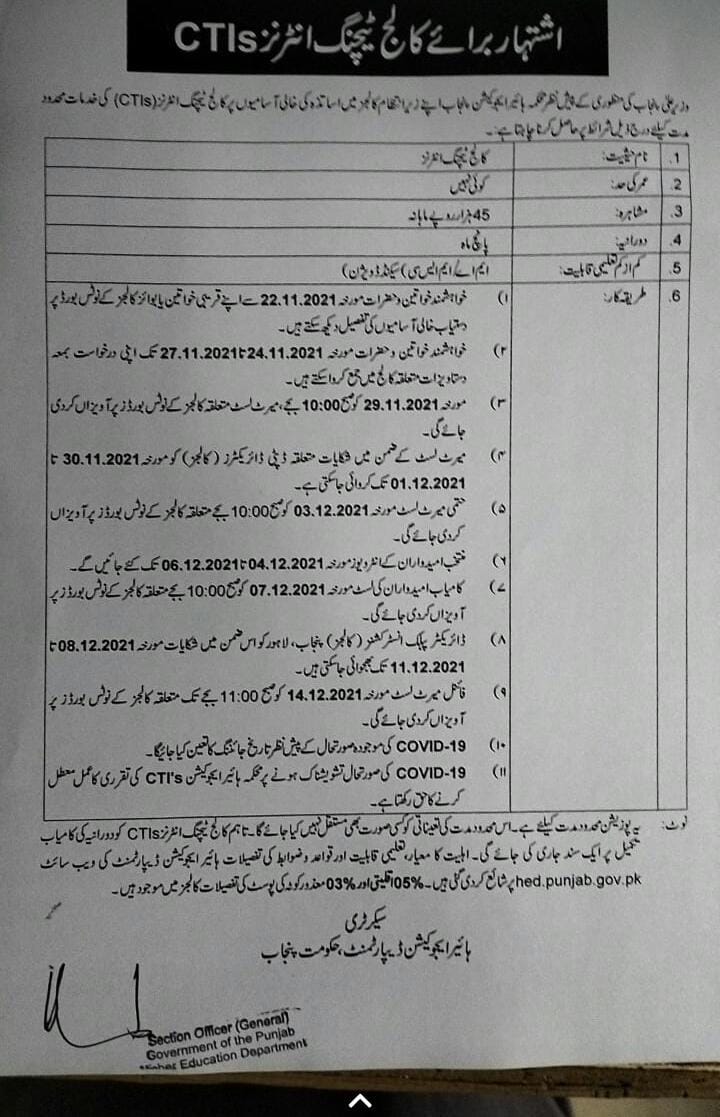 اشتہار برائے کالج ٹیچنگ انٹرنز CTIs
وزیر اعلیٰ پنجاب کی منظوری کے پیش نظر محکمہ ہائیر ایجوکیشن پنجاب اپنے زیر انتظام کالجز میں اساتذہ کی خالی آسامیوں پر کالج ٹیچنگ انٹرنز (CTIs) کی خدمات محدود
مدت کیلئے درج ذیل شرائط پر حاصل کرنا چاہتا ہے:۔
1. نام حیثیت: کالج ٹیچنگ انٹرنز
2. عمر کی حد: کوئی نہیں
3. مشاہرہ: 45 ہزار روپے ماہانہ
4. دورانیہ: پانچ ماہ
5. کم از کم تعلیمی قابلیت: ایم اے/ ایم ایس سی (سیکنڈ ڈویژن)
6. طریقہ کار: ۱) خواہشمند خواتین و حضرات مورخہ 22.11.2021 سے اپنے قریبی خواتین یا بوائز کالجز کے نوٹس بورڈ پر
دستیاب خالی آسامیوں کی تفصیل دیکھ سکتے ہیں۔
۲) خواہشمند خواتین و حضرات مورخہ 24.11.2021 تا 27.11.2021 تک اپنی درخواست بمعہ
دستاویزات متعلقہ کالج میں جمع کروا سکتے ہیں۔
۳) مورخہ 29.11.2021 کو صبح 10:00 بجے، میرٹ لسٹ متعلقہ کالجز کے نوٹس بورڈز پر آویزاں کر دی
جائے گی۔
۴) میرٹ لسٹ کے ضمن میں شکایات متعلقہ ڈپٹی ڈائریکٹرز (کالجز) کو مورخہ 30.11.2021 تا
01.12.2021 تک کروائی جا سکتی ہے۔
۵) حتمی میرٹ لسٹ مورخہ 03.12.2021 کو صبح 10:00 بجے متعلقہ کالجز کے نوٹس بورڈز پر آویزاں
کر دی جائے گی۔
۶) منتخب امیدواران کے انٹرویوز مورخہ 04.12.2021 تا 06.12.2021 تک کئے جائیں گے۔
۷) کامیاب امیدواران کی لسٹ مورخہ 07.12.2021 کو صبح 10:00 بجے متعلقہ کالجز کے نوٹس بورڈز پر
آویزاں کر دی جائے گی۔
۸) ڈائریکٹر پبلک انسٹرکشنز (کالجز) پنجاب، لاہور کو اس ضمن میں شکایات مورخہ 08.12.2021 تا
11.12.2021 تک بھجوائی جا سکتی ہیں۔
۹) فائنل میرٹ لسٹ مورخہ 14.12.2021 کو صبح 11:00 بجے تک متعلقہ کالجز کے نوٹس بورڈز پر
آویزاں کر دی جائے گی۔
۱۰) COVID-19 کی موجودہ صورتحال کے پیش نظر تاریخ جائننگ کا تعین کیا جائیگا۔
۱۱) COVID-19 کی صورتحال تشویشناک ہونے پر محکمہ ہائیر ایجوکیشن CTI's کی تقرری کا عمل معطل
کرنے کا حق رکھتا ہے۔
نوٹ: یہ پوزیشن محدود مدت کیلئے ہے۔ اس محدود مدت کی تعیناتی کو کسی صورت بھی مستقل نہیں کیا جائے گا تاہم کالج ٹیچنگ انٹرنز CTIs کو دورانیہ کی کامیاب
تکمیل پر ایک سند جاری کی جائے گی۔ اہلیت کا معیار، تعلیمی قابلیت اور قواعد و ضوابط کی تفصیلات ہائیر ایجوکیشن ڈیپارٹمنٹ کی ویب سائٹ
hed.punjab.gov.pk پر شائع کر دی گئی ہیں۔ 05% اقلیتی اور 03% معذور کوٹہ کی پوسٹ کی تفصیلات کالجز میں موجود ہیں۔
سیکرٹری
ہائیر ایجوکیشن ڈیپارٹمنٹ، حکومت پنجاب
Section Officer (General)
Government of the Punjab
Higher Education Department